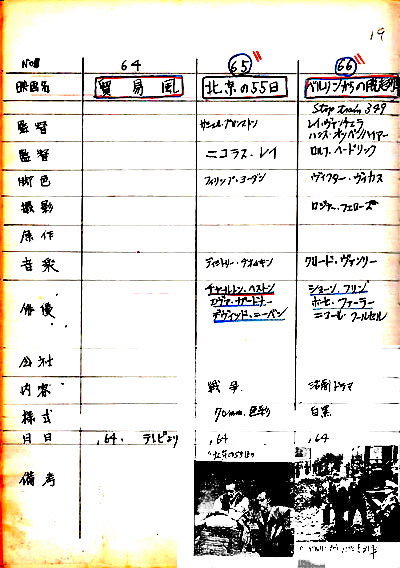 19
No. 64 65 66
映画名 貿易風 北京の55日 ベルリンからの脱走列車
Stop train 349
監督 サミュエル・ブロンストン
監督 ニコラス・レイ ロルフ・ヘードリック
脚色 フィリップ・ヨーダン ヴィクター・ヴィカス
撮影 ロジャー・フェローズ
原作
音楽 ディミトリー・チオムキン クロード・ヴァソリー
俳優 チャールトン・ヘストン ショーン・フリン
エヴァ・ガードナー ホセ・ファーラー
デヴィッド・ニーベン ニコール・クールセル
会社
内容 戦争 活劇ドラマ
様式 70mm.色彩 白黒
月日 ,64. テレビより ,64 ,64
備考 "北京の55日"